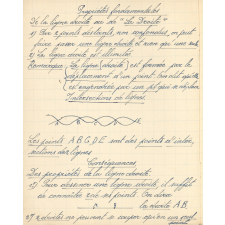 Propriétés fondamentales
De la ligne droite ou de "La Droite"
1) Par 2 points distants, non confondus, on peut
faire passer une ligne droite et rien qu'une seule
2) La ligne droite est illimitée
Remarque: La ligne droite est formée par le
déplacement d'un point. On dit qu'elle
est engendrée par un point
Intersections de lignes
Les points A B C D E sont des points d'inter-
sections des lignes
Conséquences
Des propriétés de la ligne droite.
1) Pour désigner une ligne droite, il suffit
de connaître ses points. On dira
A B la droite AB.
2) 2 droites ne peuvent se couper qu'en un seul
point